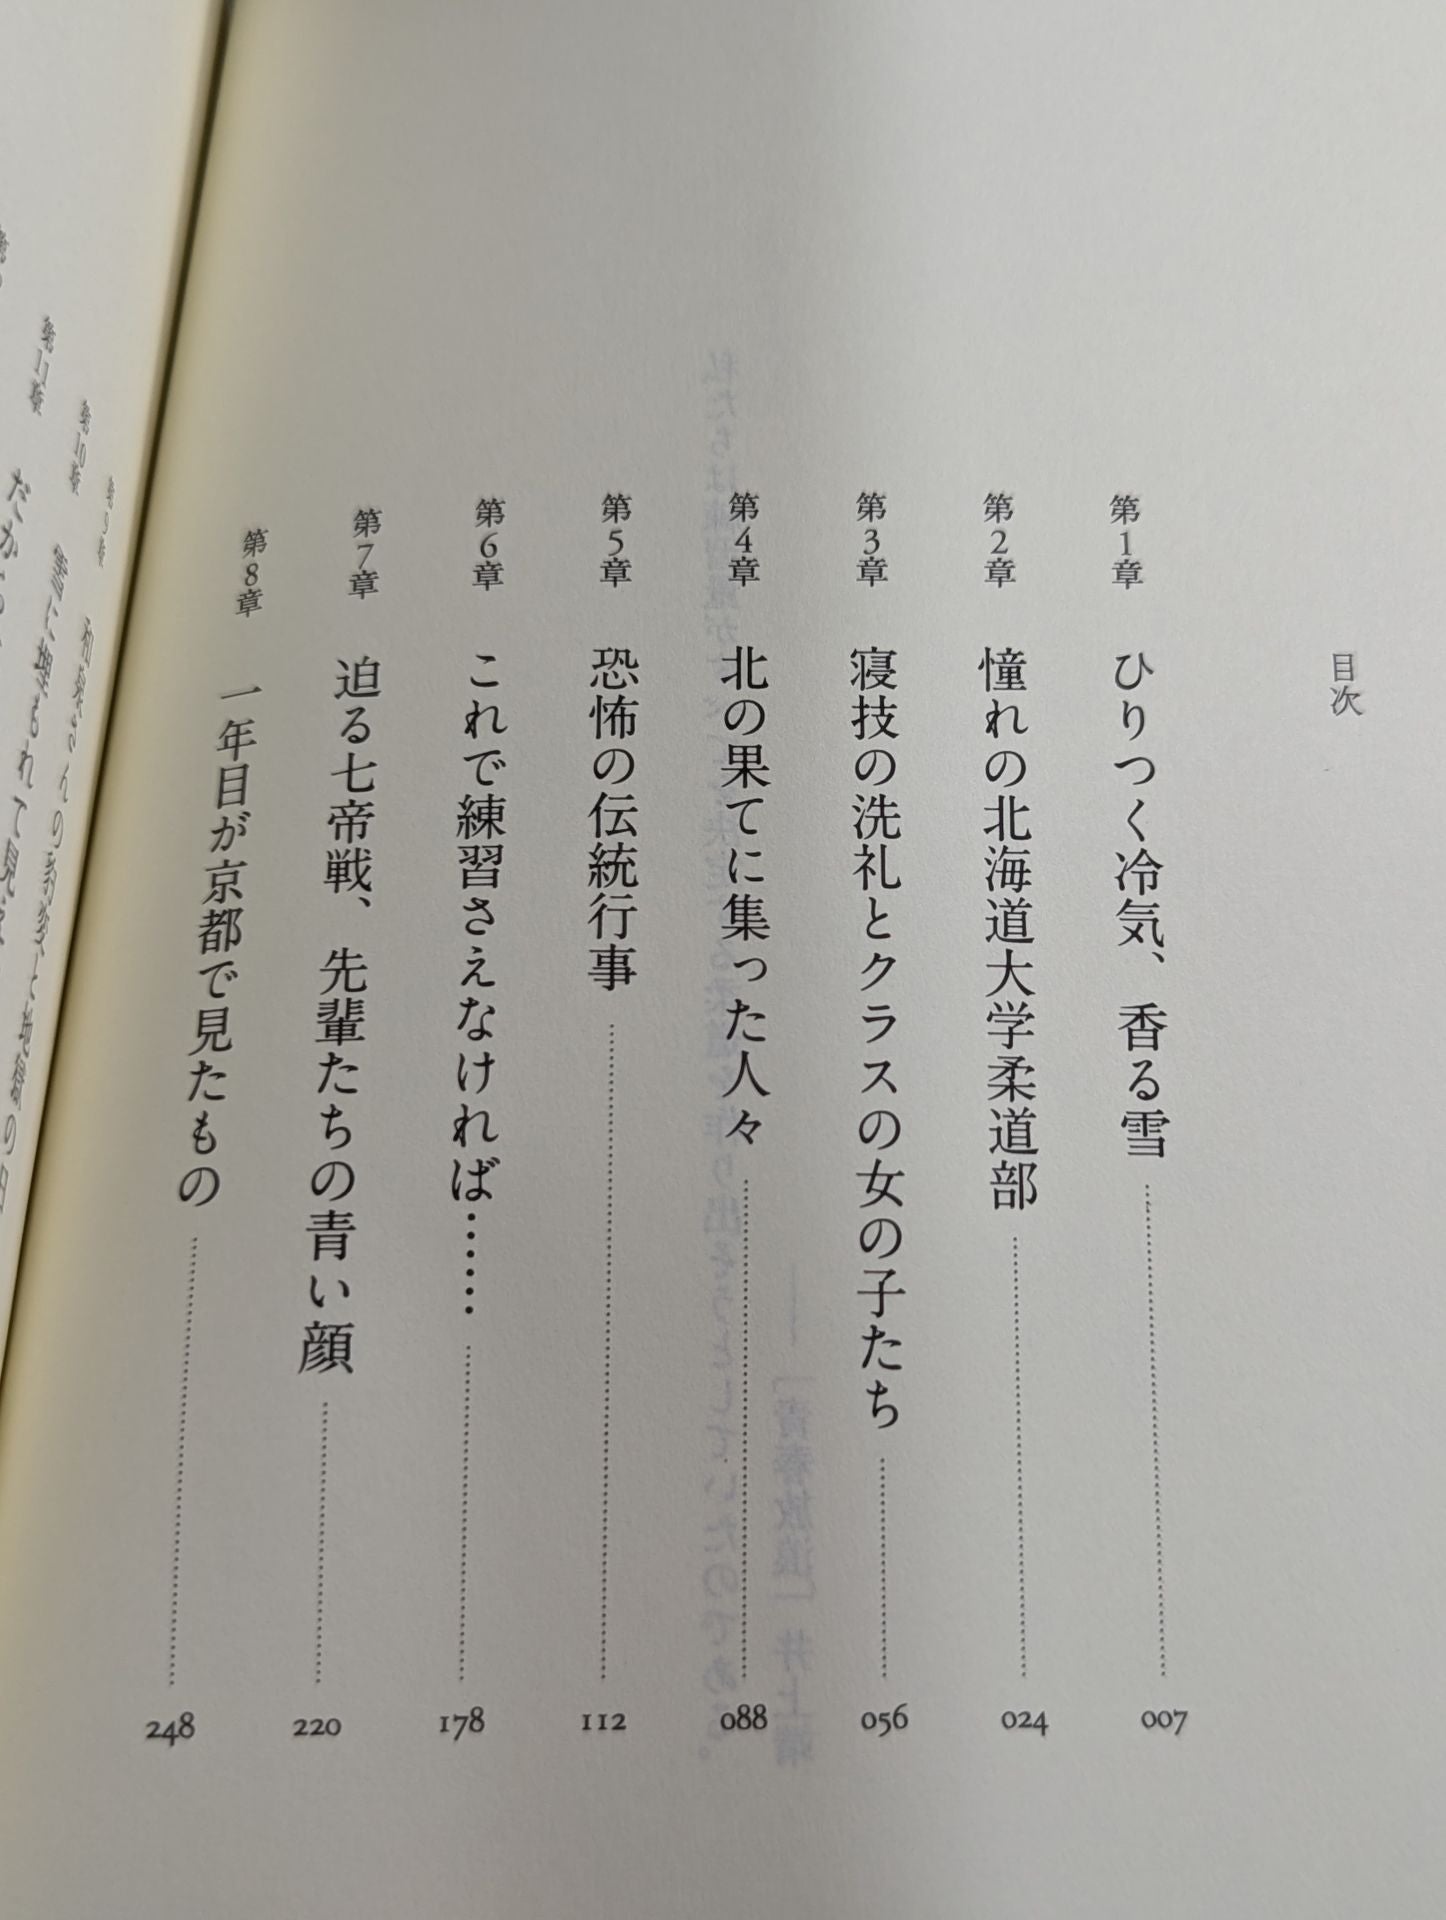 目次
第1章 ひりつく冷気、香る雪 007
第2章 憧れの北海道大学柔道部 024
第3章 寝技の洗礼とクラスの女の子たち 056
第4章 北の果てに集った人々 088
第5章 恐怖の伝統行事 112
第6章 これで練習さえなければ…… 178
第7章 迫る七帝戦、先輩たちの青い顔 220
第8章 一年目が京都で見たもの 248
第9章 和泉さんの豹変と地獄の
第10章 雪に埋もれて見
第11章 だから